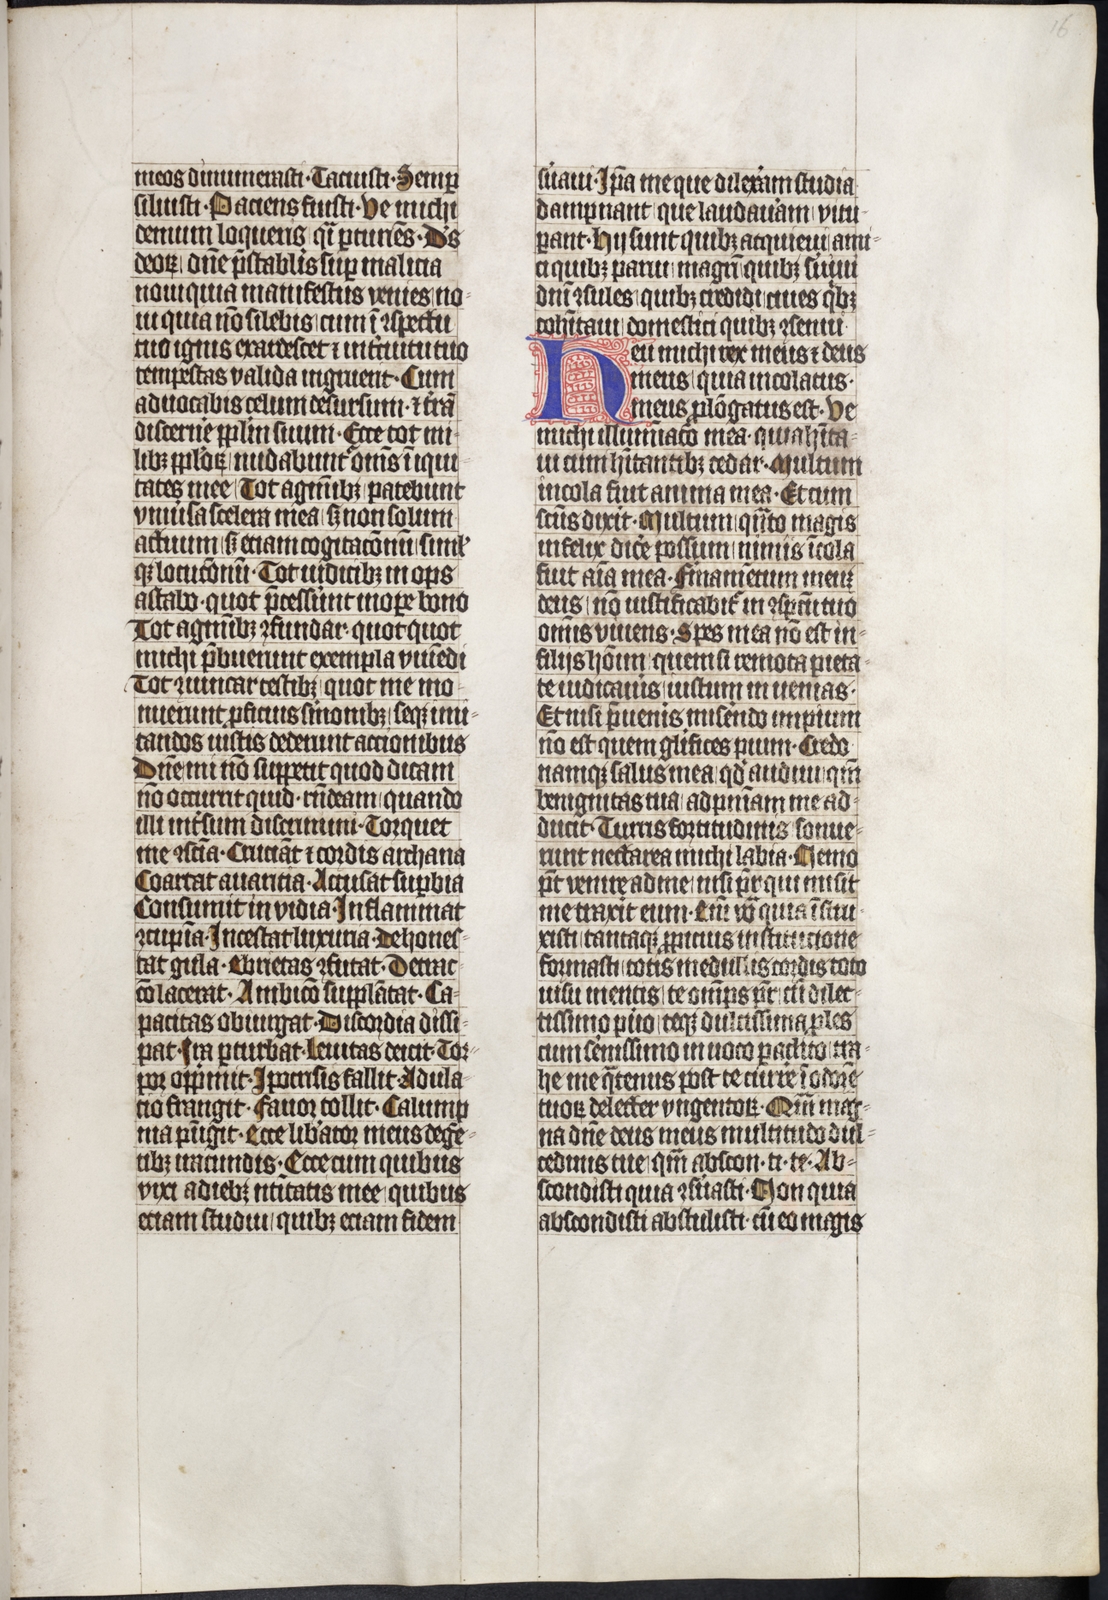 16
meos dinumerasti · Tacuisti · Semp̄
siluisti · Paciens fuisti · Ve michi
demum loqueris qͣi pturiēs · Ds̄
deoꝝ dn̄e p̄stabl̓is sup̄ malicia
noui quia manifestus venies no-
ui quia nō silebis cum ī ꝯspectu
tuo ignis exardescet ⁊ intͨuitu tuo
tempestas valida ingruent · Cum
aduocabis celum desursum · ⁊ tr̄ā
discern̓e ppl̄m suum · Ecce tot mi-
libꝫ ppl̄oꝝ nudabunt᷑ om̄s īiqui
tates mee Tot agmībꝫ patebunt
vniuͥsa scelera mea sꝫ non solum
actuum sꝫ eciam cogitacōnū simĺ
qꝫ locucōnū · Tot iudicibꝫ inops
astabo · quot p̄cesserūt in op̄e bono
Tot agmībꝫ ꝯfundar · quotquot
michi p̄buerunt exempla viuēdi
Tot ꝯuincar testibꝫ quot me mo-
nuerunt ꝓficuis s̓monibꝫ seqꝫ imi-
tandos iustis dederunt actionibus
Dn̄e mi nō suppetit quod dicam
nō occurrit quid · rn̄deam quando
illi int̓sum discrimini · Torquet
me ꝯscīa · Cruciāt ⁊ cordis archana
Coartat auaricia · Accusat sup̄bia
Consumit invidia · Inflammat
ꝯcupīa · Incestat luxuria · Dehones-
tat gula · Ebrietas ꝯfutat · Detrac-
cō lacerat · Ambicō supplātat · Ca-
pacitas obiurgat · Discordia dissi-
pat · Ira pturbat · Leuitas deicit · Tor-
por opp̓mit · Ipocrisis fallit · Adula-
tio frangit · Fauor tollit · Calump
nia pūgit · Ecce lib̓ator meus de gē-
tibꝫ iracundis · Ecce cum quibus
vixi a diebꝫ ntītatis mee quibus
eciam studui quibꝫ eciam fidem
s̓uaui · Ip̄a me que dilexͣam studia
dampnant que laudauͣam vitu-
pant · Hij sunt quibꝫ acquieui ami-
ci quibꝫ parui magrī quibꝫ s̓uiui
dn̄i ꝯsules quibꝫ credidi ciues qͥbꝫ
cohītaui domestici quibꝫ ꝯsensi
Heu michi rex meus ⁊ deus
meus quia incolatus ·
meus ꝓlōgatus est · Ve
michi illumīacō mea · quia hīta-
ui cum hītantibꝫ cedar · Multum
incola fuit anima mea · Et cum
sctūs dixit · Multum qͣnto magis
infelix dic̓e possum nimis īcola
fuit aīa mea · Firmamētum meū
deus nō iustificabit᷑ in ꝯspcū tuo
omīs viuens · Spes mea nō est in
filijs hōim quem si remota pieta-
te iudicaūis iustum inuenias ·
Et nisi p̄uenis mis̓endo impium
nō est quem glīfices pium · Credo
namqꝫ salus mea qd̓ audiui qm̄
benignitas tua ad pn̄iam me ad-
ducit · Turris fortitudinis sonue-
runt nectarea michi labia · Nemo
pt̄ venire ad me nisi pr̄ qui misit
me traxit eum · Em̄ vͦ quia īstru-
xisti tantaqꝫ ꝓpicius institucione
formasti totis medullis cordis toto
uisu mentis te om̄ps pr̄ cū dilec-
tissimo p̓uo teqꝫ dulcissima ples
cum serēissimo inuoco paclito tra-
he me qͣtenus post te curr̓e ī odorē
tuoꝝ delecter vngentoꝝ · Qm̄ mag-
na dn̄e deus meus multitudo dul-
cedinis tue qm̄ abscon · ti · te · Ab-
scondisti quia ꝯs̓uasti · Non quia
abscondisti abstulisti · cū eo magis